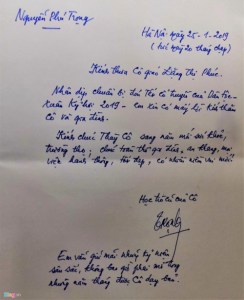 Nguyễn Phú Trọng
Hà Nội ngày 25-1-2019
(tức ngày 20 tháng chạp)
Kính thưa Cô giáo Đặng Thị Phúc.
Nhân dịp chuẩn bị đón Tết cổ truyền của Dân tộc -
Xuân Kỷ Hợi 2019 - em xin có mấy lời kính thăm
Cô và gia đình.
Kính chúc Thầy Cô sang năm mới sức khỏe,
trường thọ; chúc toàn thể gia đình an khang, mọi
việc hanh thông, tốt đẹp, có nhiều niềm vui mới!
Học trò cũ của Cô
Trọng
Em vẫn giữ mãi những kỷ niệm
sâu sắc, không bao giờ phai mờ trong
những năm tháng được Cô dạy bảo.